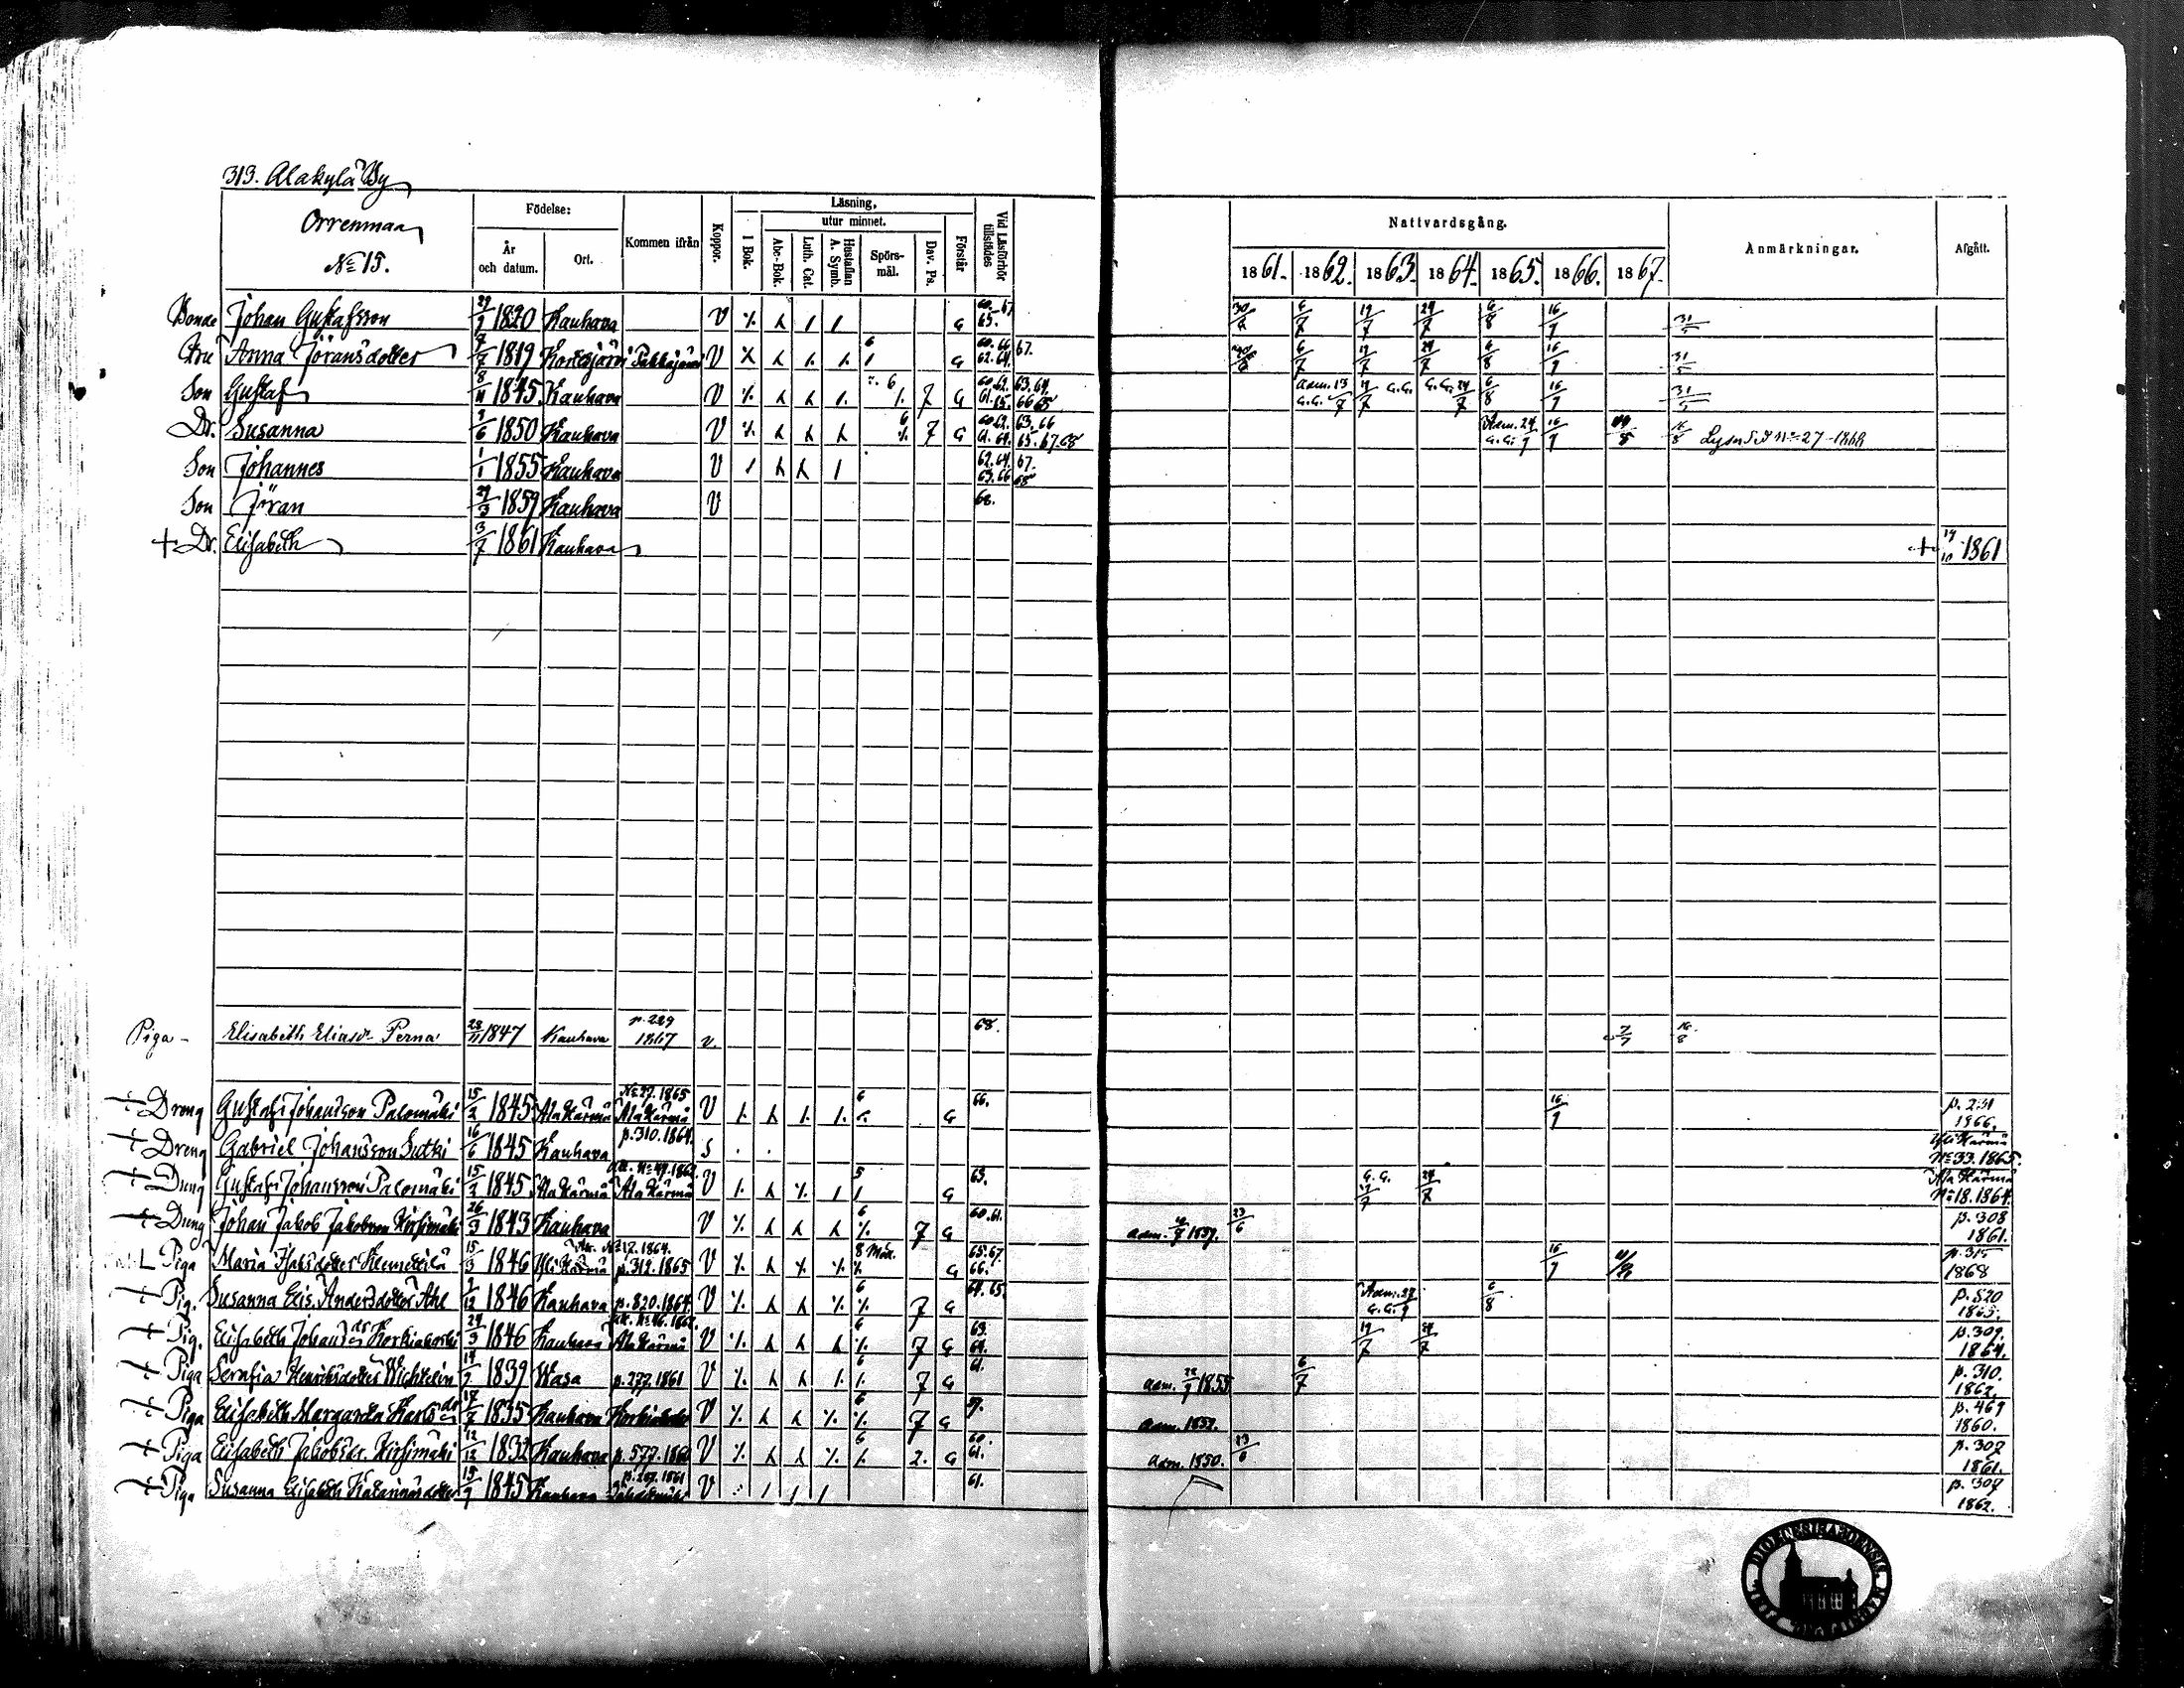 313. Alakylä By
Orrenmaa
No 15.
Födelse:
År och datum.
Ort.
Kommen ifrån
Koppor.
Läsning,
utur minnet.
I Bok.
Abc-Bok.
Luth. Cat.
Hustaflan A. Symb.
Spörs-mål.
Dav. Ps.
Förstår
Vid Läsförhör tillstädes
Nattvardsgång.
1861. 1862. 1863. 1864. 1865. 1866. 1867.
Anmärkningar.
Afgått.
Bonde Johan Gustafsson 29/9 1820 Kauhava V G 30/6 6/7 19/7 24/7 6/8 16/9 31/5
Hru Anna Jöransdotter 1819 Kortesjärvi V G 67. 6/7 19/7 24/7 6/8 16/9 31/5
Son Gustaf 8/11 1845 Kauhava V 7 G 63.64 Adm. 13/7 G.G. 19/7 G.G. G.G. 24/7 6/8 16/9 31/5
Dr. Susanna 9/6 1850 Kauhava V 7 G 63.66 65.67.68 Adm. 24/9 G.G. 16/9 16/8 Lysn No 27 1868
Son Johannes 1/1 1855 Kauhava V 62.64. 67. 63.66 68
Son Jöran 29/3 1859 Kauhava V 68.
+ Dr. Elisabeth 3/7 1861 Kauhava + 19/10 1861
Piga Elisabeth Eliasdr Perna 23/11 1847 Kauhava p. 229 1867 v. 68. 7/7 16/8
+ Dreng Gustaf Johansson Palomäki 15/2 1845 Ala Härmä No 27. 1865 Ala Härmä V 6 G 66. 16/9 p. 231 1866.
+ Dreng Gabriel Johansson Sutki 16/6 1845 Kauhava p. 310. 1864. S Yli Härmä No 33. 1865.
+ Dreng Gustaf Johansson Palomäki 15/2 1845 Ala Härmä Ala Härmä V 5 G 63. G.G. 19/7 24/7 Ala Härmä No 18. 1864.
+ Dreng Johan Jakob Jakobsson Kirsimäki 26/3 1843 Kauhava V 6 7 G 60.61. Adm. 1859. 23/6 p. 308 1861.
Piga Maria Isaksdotter Klemettilä 15/3 1846 Yli Härmä No 12. 1864. p. 312. 1865 V 8 G 65.67. 66. 16/9 p. 315 1868
+ Pig. Susanna Elis. Andersdotter Ahl 2/12 1846 Kauhava p. 820. 1864. V 6 7 G 64.65. Adm. 27/9 G.G. 6/8 p. 520 1865.
+ Pig. Elisabeth Johansdr Korkiakoski 24/3 1846 Kauhava No 46. 1862. Ala Härmä V 6 7 G 63. 64. 19/7 24/7 p. 309. 1864.
+ Piga Serafia Henriksdotter 1839 Wasa p. 277. 1861 V 6 7 G 61. Adm. 22/9 1855 6/7 p. 310. 1862.
+ Piga Elisabeth Margareta Karlsdr 1835 Kauhava V 6 7 G Adm. 1852. p. 469 1860.
+ Piga Elisabeth Jakobsdr. Kirsimäki 12/12 1832 Kauhava p. 577. 1860 V 6 2. G 60. 61. Adm. 1850. 23/6 p. 302 1861.
+ Piga Susanna Elisabeth 1845 Kauhava p. 207. 1861 V 61. p. 307 1862.
DIOECESIS ABOENSIS